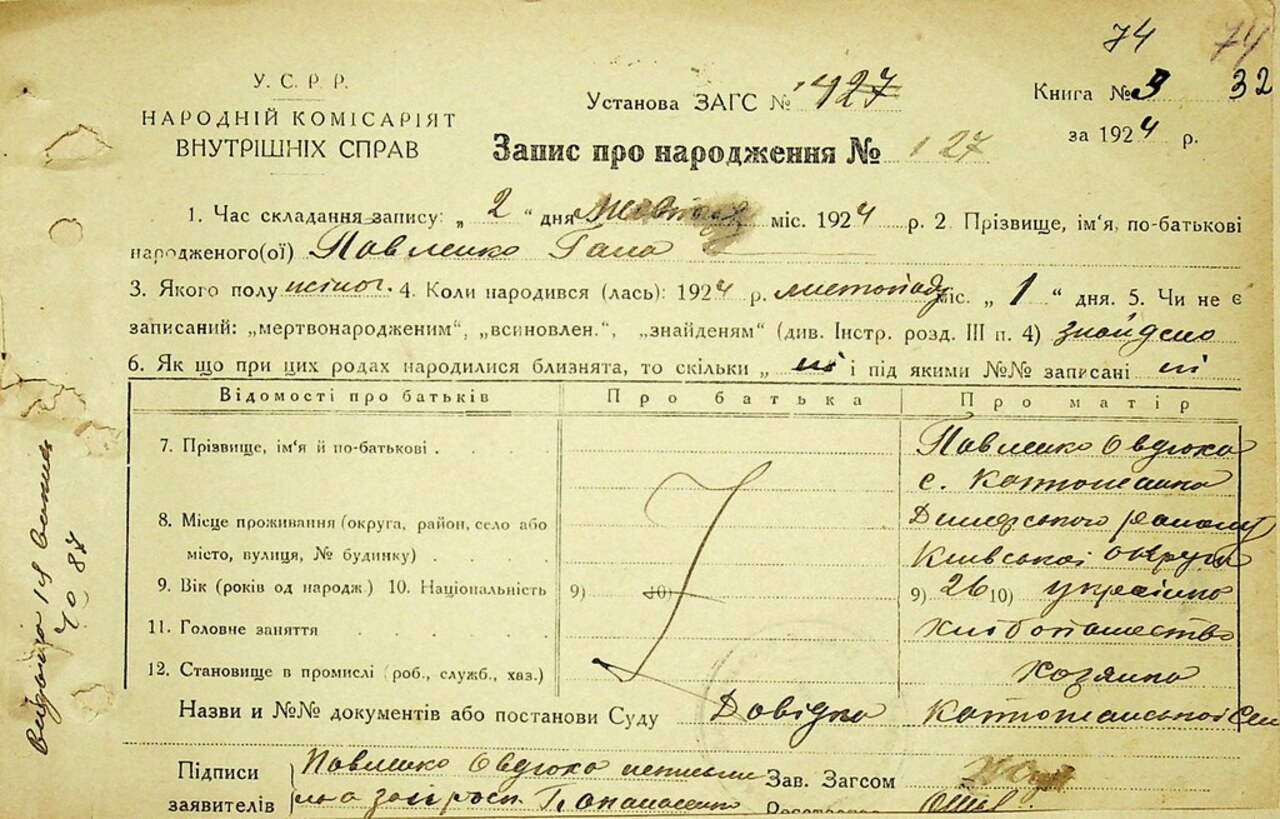 74 74
У. С. Р. Р.
НАРОДНІЙ КОМІСАРІЯТ
ВНУТРІШНІХ СПРАВ
Установа ЗАГС № 127
Книга № 3 32
за 1924 р.
Запис про народження № 127
1. Час складання запису: „ 2 “ дня міс. 1924 р. 2. Прізвище, ім‘я, по-батькові
народженого(ої) Павленко Гана
3. Якого полу жіноч. 4. Коли народився (лась): 1924 р. листопаду міс. „ 1 “ дня. 5. Чи не є
записаний: „мертвонародженим“, „всиновлен.“, „знайденям“ (див. Інстр. розд. III п. 4)
6. Як що при цих родах народилися близнята, то скільки „ ні і під якими №№ записані ні
Відомості про батьків Про батька Про матір
7. Прізвище, ім‘я й по-батькові . . . Павленко Овдюха
8. Місце проживання (округа, район, село або
місто, вулиця, № будинку) . . . с. Катюжанка
Димерського району
Київської округи
9. Вік (років од народж.) 10. Національність 9) 10) 9) 26 10) українка
11. Головне заняття . . . хлібопашество
12. Становище в промислі (роб., служб., хаз.) хозяйка
Назви и №№ документів або постанови Суду Довідка Катюжанської
Підписи
заявителів
Павленко Овдюха
Зав. Загсом